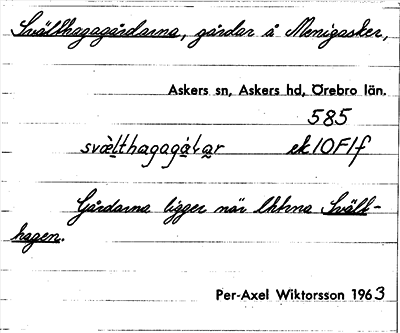 Svälthagagårdarna, gårdar å Menigasker,
Askers sn, Askers hd, Örebro län.
585
svälthagagáṛar ek 10F1f
Gårdarna ligger när lhhrna Svält-
hagen.
Per-Axel Wiktorsson 1963